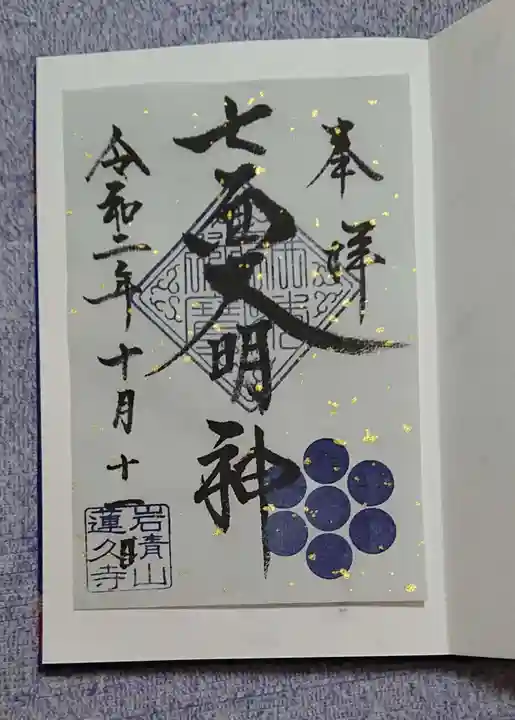 奉拝
七面大明神
令和二年十月十一日
岩青山
蓮久寺